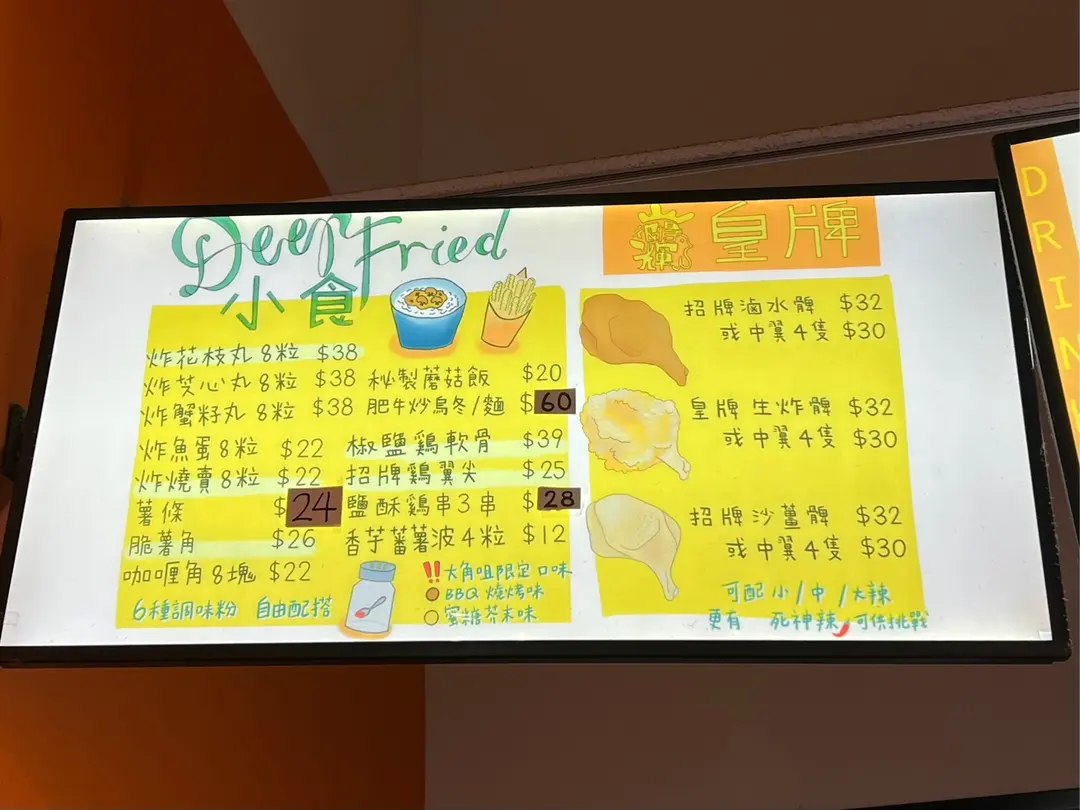 Deep Fried
小食
炸花枝丸 8粒 $38
炸芝心丸 8粒 $38
炸蟹籽丸 8粒 $38
炸魚蛋 8粒 $22
炸燒賣 8粒 $22
薯條 $24
脆薯角 $26
咖喱角 8塊 $22
6種調味粉 自由配搭
秘製蘑菇飯 $20
肥牛炒烏冬/麵 $60
椒鹽鷄軟骨 $39
招牌鷄翼尖 $25
鹽酥鷄串3串 $28
香芋蕃薯波4粒 $12
!! 大角咀限定口味
BBQ 燒烤味
蜜糖芥末味
皇牌
招牌滷水髀 $32
或中翼4隻 $30
皇牌 生炸髀 $32
或中翼4隻 $30
招牌沙薑髀 $32
或中翼4隻 $30
可配 小/中/大辣
更有 死神辣 可供挑戰
DRIN